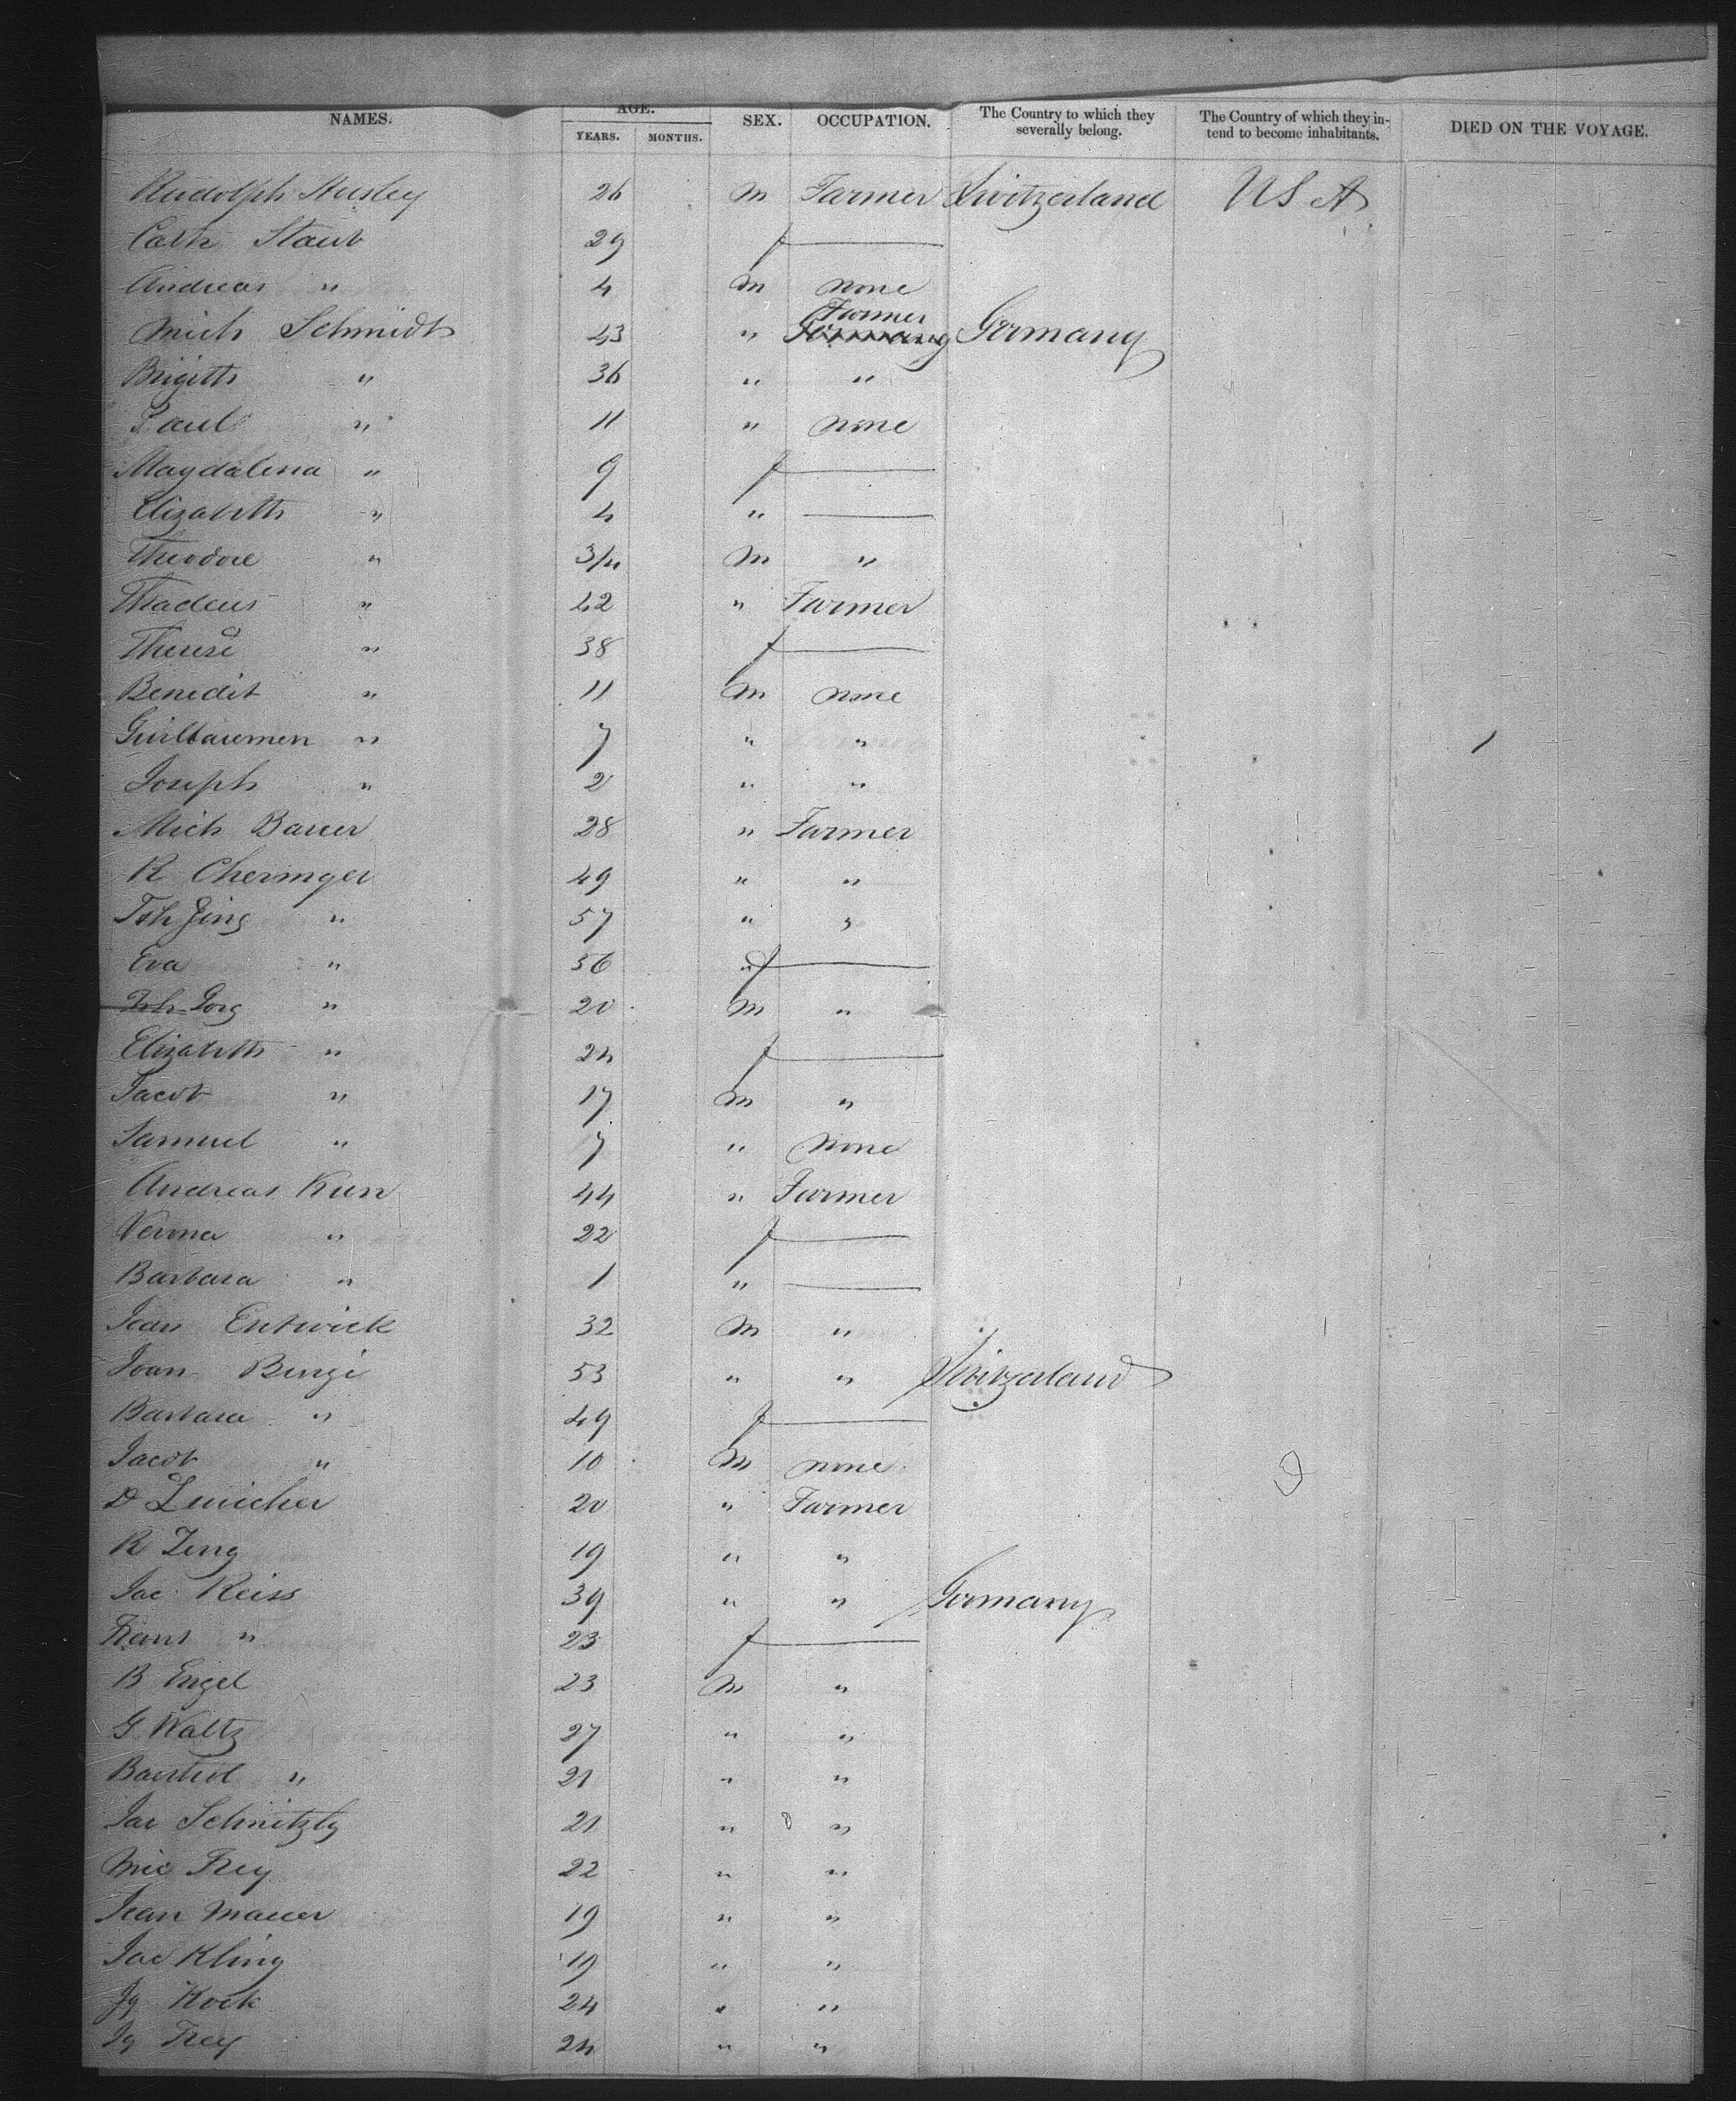 NAMES. AGE. YEARS. MONTHS. SEX. OCCUPATION. The Country to which they severally belong. The Country of which they intend to become inhabitants. DIED ON THE VOYAGE.
Rudolph Husley 26 m Farmer Switzerland U S A
Cath Staub 29 f
Andreas " 4 m none
Mich Schmidt 43 " Farmer Germany Germany
Brigitth " 36 " "
Paul " 11 " none
Magdalena " 9 f
Elizabeth " 4 "
Theodore " 3/4 m "
Thadeus " 42 " Farmer
Therese " 38 f
Benedit " 11 m none
Guillaumen " 7 " " 1
Joseph " 2 " "
Mich Bauer 28 " Farmer
R Cheringer 49 " "
" 57 " "
Eva " 56 f
Joh Gorg " 20 m "
Elizabeth " 24 f
Jacob " 17 m "
Samuel " 7 " none
Andreas Kun 44 " Farmer
Verona " 22 f
Barbara " 1 "
Jean Entwick 32 m "
Joan Bengi 53 " " Switzerland
Barbara " 49 f
Jacob " 10 m none
D Zuricher 20 " Farmer
R Zeng 19 " "
Jac Reiss 39 " " Germany
Frans " 23 f
B Engel 23 m "
G Waltz 27 " "
Barthol " 21 " "
Jac Schnitzly 21 " "
Mic Frey 22 " "
Jean Mauer 19 " "
Jac Kling 19 " "
Jg Kock 24 " "
Jg Frey 24 " "